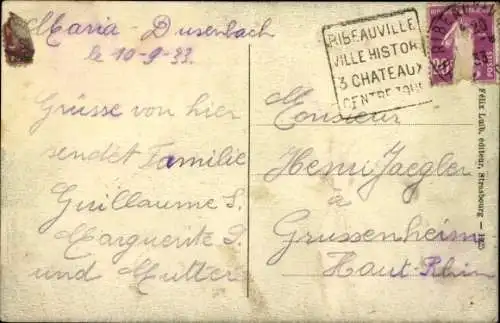 Maria - Dusenbach
le 10-9-33
Grüsse von hier
sendet Familie
Guillaume S.
Marguerite S.
und Mutter
RIBEAUVILLE
VILLE HISTOR
3 CHATEAUX
CENTRE TOU
Monsieur
Henri Jaegler
à
Grussenheim
Haut-Rhin
Félix Luib, éditeur, Strasbourg